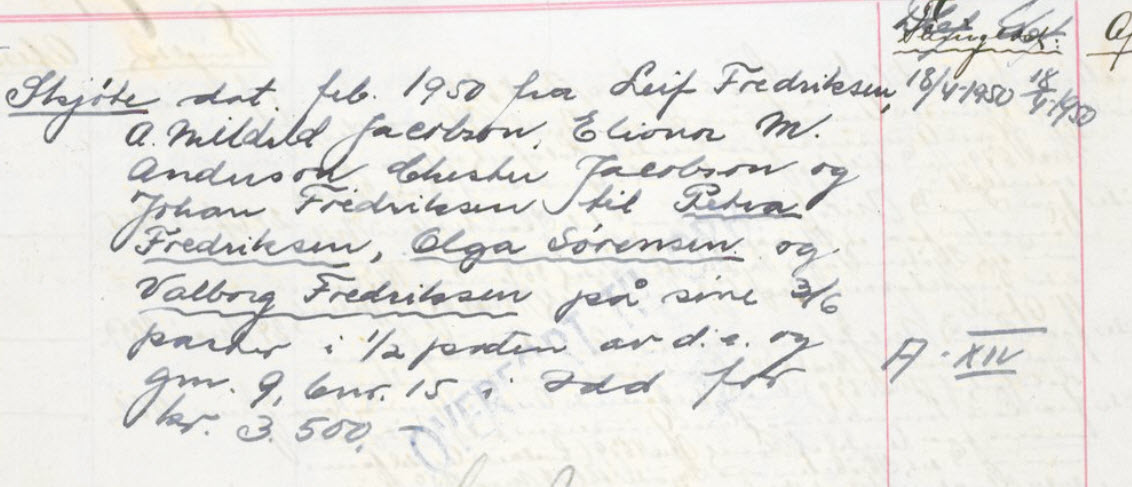 Skjöte dat. feb. 1950 fra Leif Fredriksen, 18/4-1950 18/4-1950
A. Mildred Jacobson, Elionor M.
Anderson Chester Jacobson og
Johan Fredriksen til Petra
Fredriksen, Olga Sørensen og
Valborg Fredriksen på sine 3/6
parter i 1/2 parten av d.e. og
gnr. 9, bnr. 15 i Idd for A - XII
kr. 3.500,-
OVERFØRT